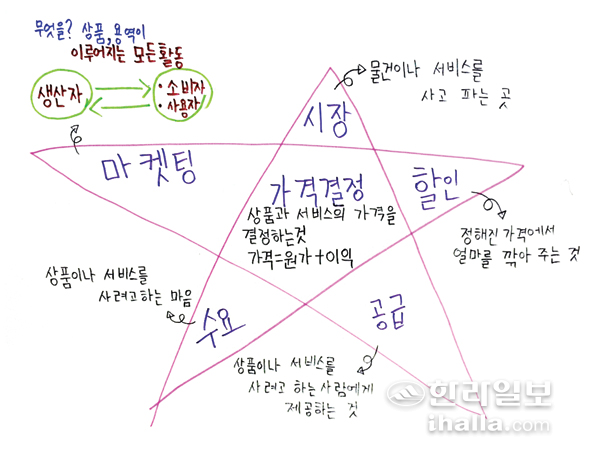 무엇을? 상품, 용역이
이루어지는 모든활동
생산자
· 소비자
· 사용자
시장
물건이나 서비스를
사고 파는 곳
마켓팅
가격결정
상품과 서비스의 가격을
결정하는것
가격=원가+이익
할인
정해진 가격에서
얼마를 깎아 주는 것
상품이나 서비스를
사려고하는 마음
수요
공급
상품이나 서비스를
사려고 하는사람에게
제공하는 것
한라일보
ihalla.com